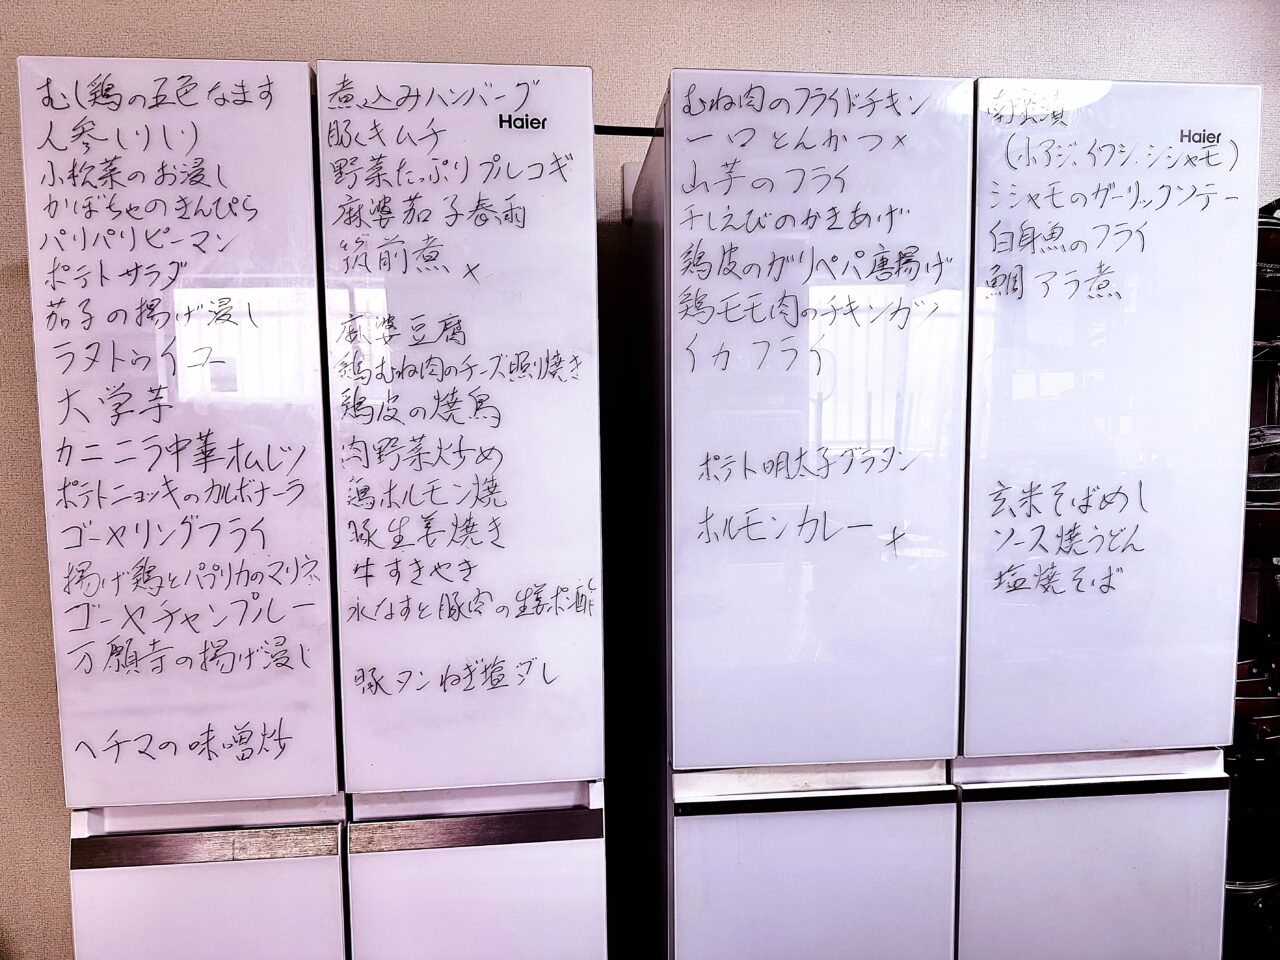 むし鶏の五色なます
人参しりしり
小松菜のお浸し
かぼちゃのきんぴら
パリパリピーマン
ポテトサラダ
茄子の揚げ浸し
ラタトゥイユ
大学芋
カニニラ中華オムレツ
ポテトニョッキのカルボナーラ
ゴーヤリングフライ
揚げ鶏とパプリカのマリネ
ゴーヤチャンプルー
万願寺の揚げ浸し
ヘチマの味噌炒
煮込みハンバーグ
Haier
豚キムチ
野菜たっぷりプルコギ
麻婆茄子春雨
筑前煮 ×
麻婆豆腐
鶏むね肉のチーズ照り焼き
鶏皮の焼鳥
肉野菜炒め
鶏ホルモン焼
豚生姜焼き
牛すきやき
水なすと豚肉の生姜ポン酢
豚タンねぎ塩ダレ
むね肉のフライドチキン
一口とんかつ ×
山芋のフライ
干しえびのかきあげ
鶏皮のガリペパ唐揚げ
鶏モモ肉のチキンカツ
イカフライ
ポテト明太子グラタン
ホルモンカレー ×
南蛮漬
Haier
(小アジ、イワシ、シシャモ)
シシャモのガーリックソテー
白身魚のフライ
鯛アラ煮
玄米そばめし
ソース焼うどん
塩焼そば